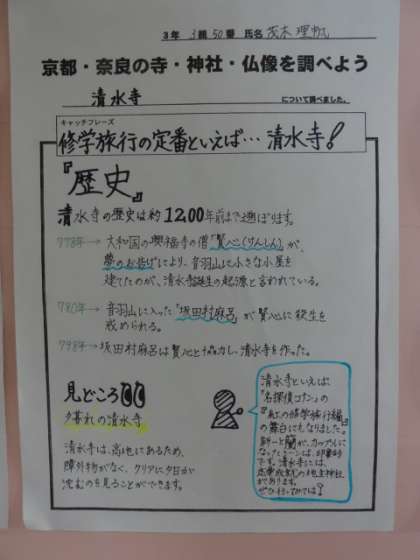 3年 3組 50番 氏名 茂木 理帆
京都・奈良の寺・神社・仏像を調べよう
清水寺 について調べました。
キャッチフレーズ
修学旅行の定番といえば… 清水寺!
『歴史』
清水寺の歴史は約1200年前まで遡ぼります。
778年→ 大和国の興福寺の僧「賢心(けんしん)」が、
夢のお告げにより、音羽山に小さな小屋を
建てたのが、清水寺誕生の起源と言われている。
780年→ 音羽山に入った「坂田村麻呂」が賢心に殺生を
戒められる。
798年→ 坂田村麻呂は賢心と協力し、清水寺を作った。
見どころ
夕暮れの清水寺
清水寺は、高地にあるため、
障外物がなく、クリアに夕日が
沈むのを見ることができます。
清水寺といえば
「名探偵コナン」の
「紅の修学旅行編」
の舞台にもなりました。
新一と蘭が、カップルに
なったシーンは、印象的
です。清水寺には、
恋愛成就の地主神社
があります。